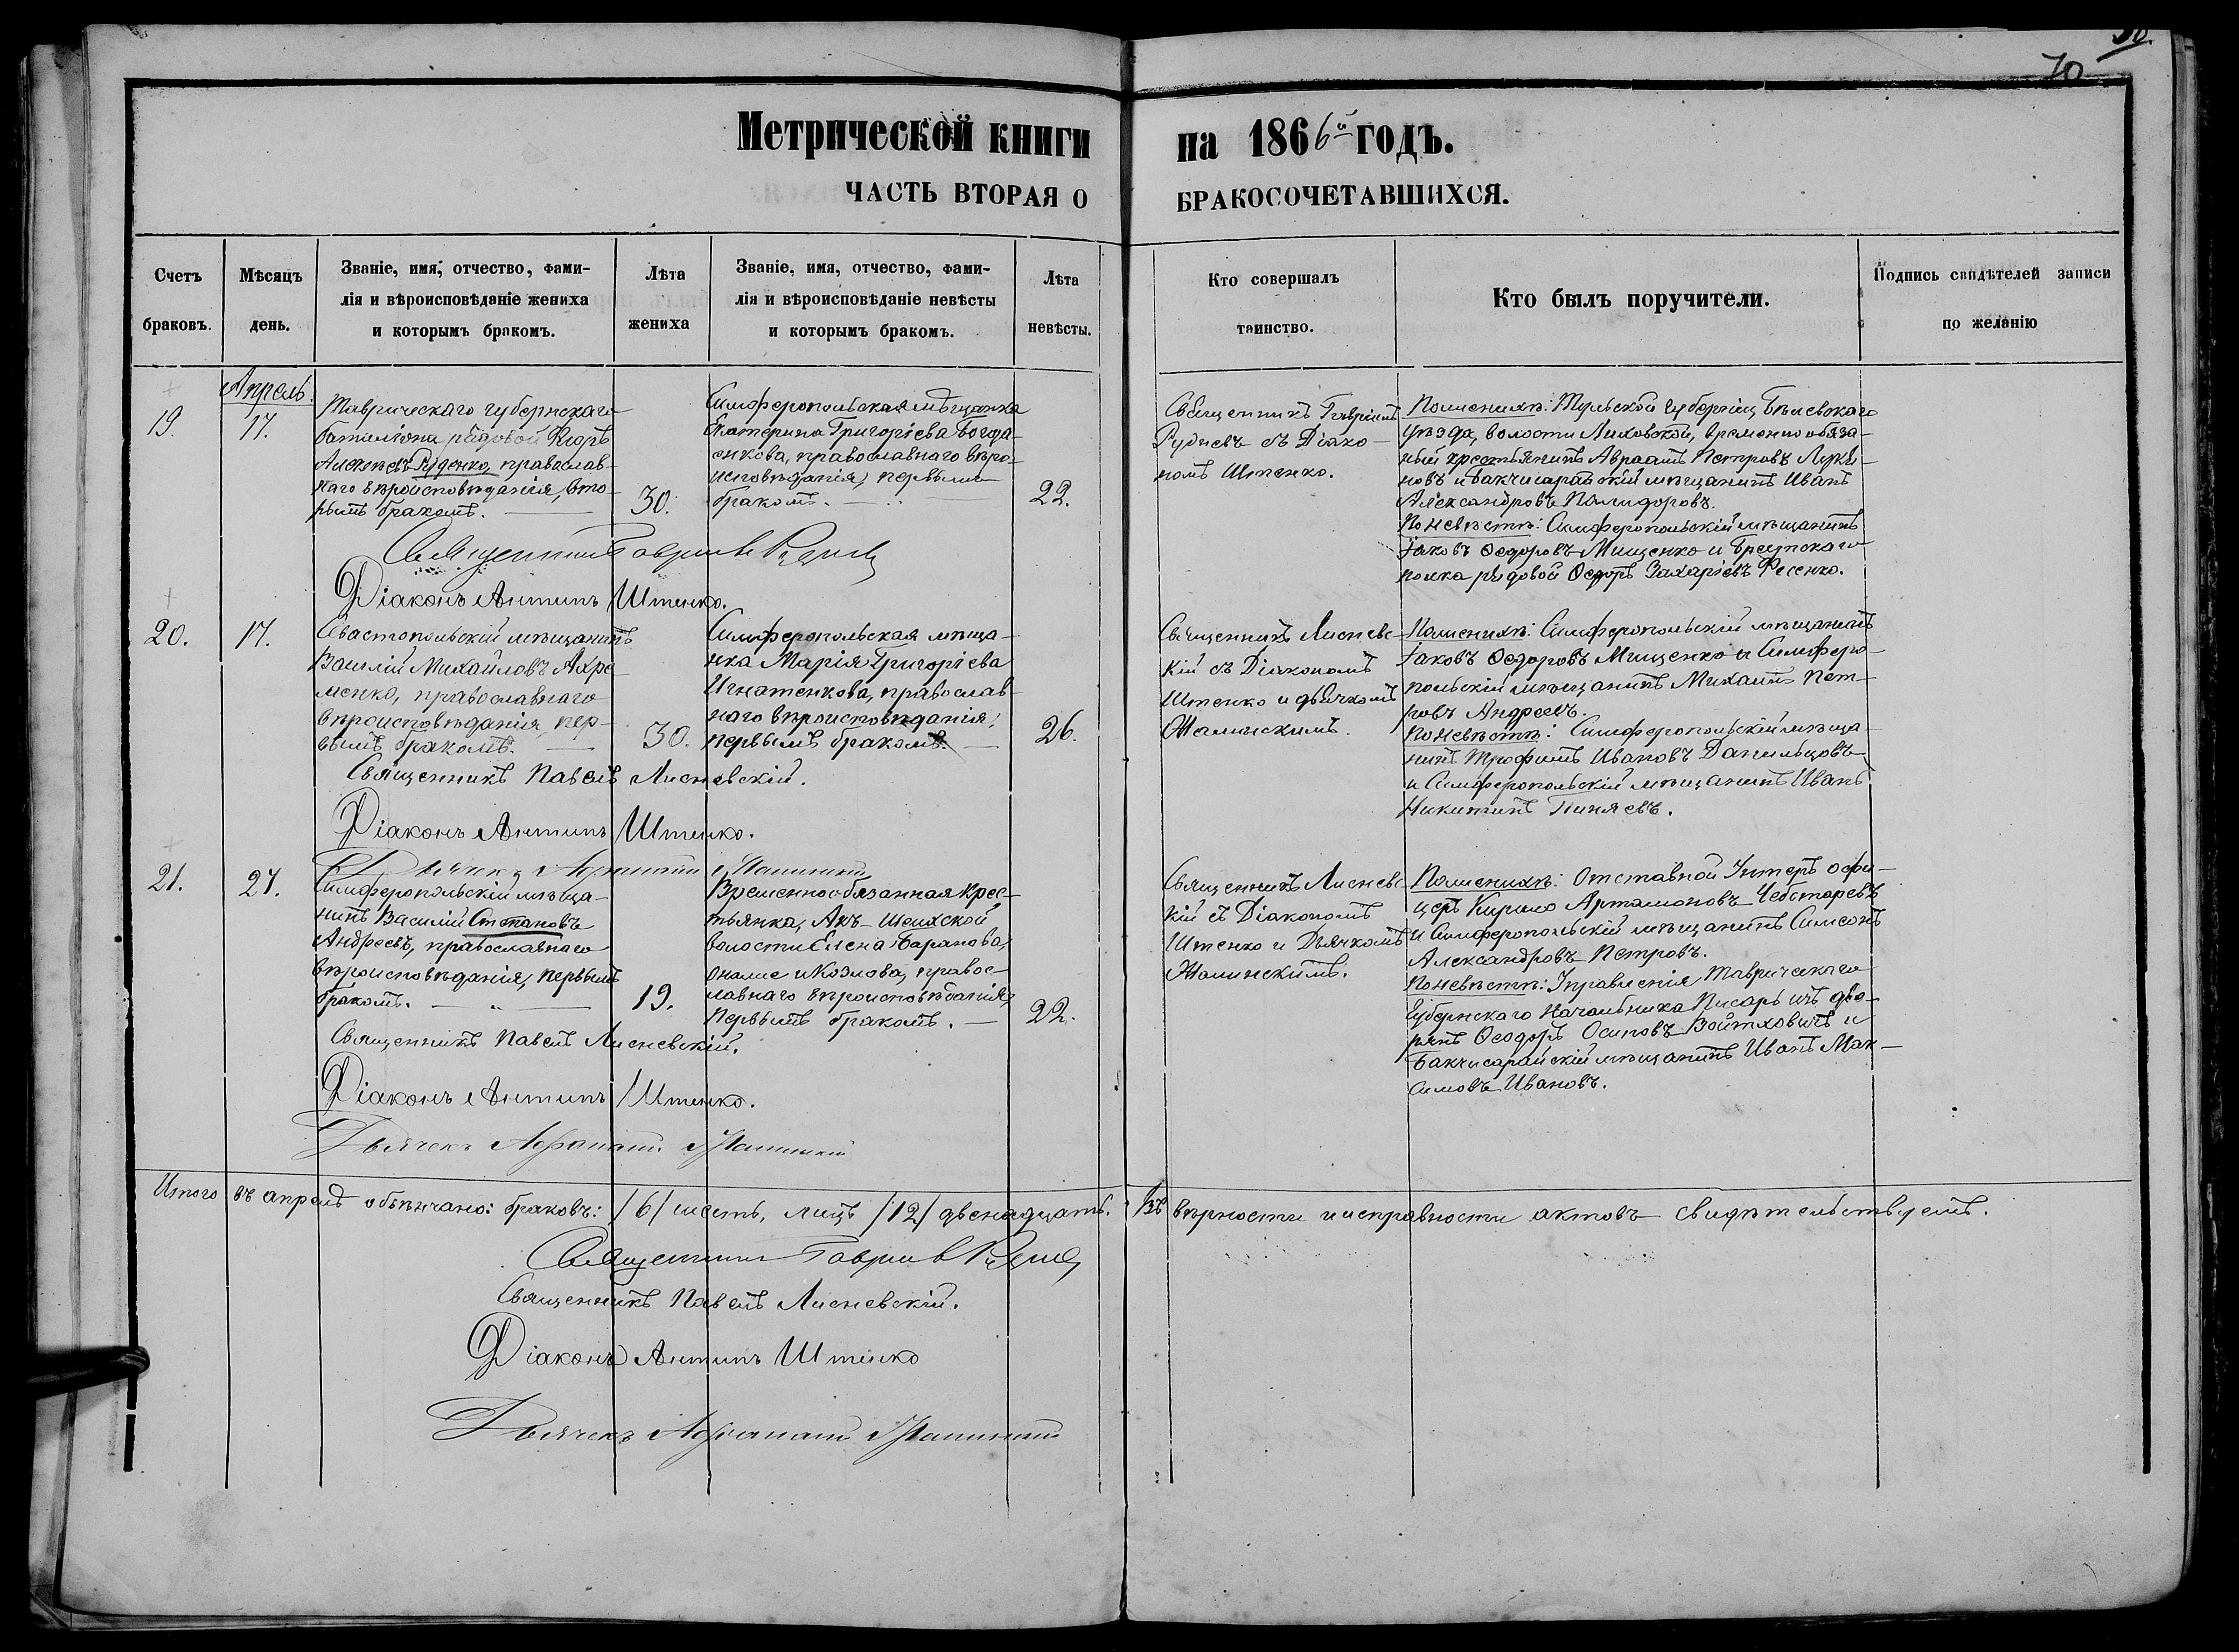 70
Метрической книги на 1866й годъ.
ЧАСТЬ ВТОРАЯ О БРАКОСОЧЕТАВШИХСЯ.
Счетъ
браковъ.
Мѣсяцъ
день.
Званіе, имя, отчество, фами-
лія и вѣроисповѣданіе жениха
и которымъ бракомъ.
Лѣта
жениха
Званіе, имя, отчество, фами-
лія и вѣроисповѣданіе невѣсты
и которымъ бракомъ.
Лѣта
невѣсты.
Кто совершалъ
таинство.
Кто былъ поручители.
Подпись свидѣтелей записи
по желанію
Апрель.
19.
17.
Таврическаго губернскаго
баталіона рядовой
Алексѣевъ Руденко, православ-
наго вѣроисповѣданія, вто-
рымъ бракомъ.
30.
Симферопольская мѣщанка
Екатерина Григоріева Богда-
енкова, православнаго вѣро-
исповѣданія, первымъ
бракомъ.
22.
Священникъ Гавріилъ
Рудневъ съ Діако-
номъ Штенко.
Поженихѣ: Тульской губерніи Бѣлевскаго
уѣзда, волости Лиховской, временно обяза-
ный крестьянинъ Авраамъ Петровъ Луки-
новъ и Бакчисарайскій мѣщанинъ Иванъ
Александровъ Полидоровъ.
Поневѣстѣ: Симферопольскій мѣщанинъ
Іаковъ Ѳедоровъ Мищенко и Брестскаго
полка рядовой Ѳедоръ Захаріевъ Фесенко.
Священникъ Гавріилъ Рудневъ
Діаконъ Антипъ Штенко.
20.
17.
Севастопольскій мѣщанинъ
Василій Михайловъ Ахре-
менко, православнаго
вѣроисповѣданія, пер-
вымъ бракомъ.
30.
Симферопольская мѣща-
нка Марія Григоріева
Игнатенкова, православ-
наго вѣроисповѣданія,
первымъ бракомъ.
26.
Священникъ Лисневс-
кій съ Діакономъ
Штенко и дьячкомъ
Жалинскимъ.
Поженихѣ: Симферопольскій мѣщанинъ
Іаковъ Ѳедоровъ Мищенко и Симферо-
польскій мѣщанинъ Михаилъ Пет-
ровъ Андреевъ.
Поневѣстѣ: Симферопольскій мѣща-
нинъ Трофимъ Ивановъ Данильцовъ
и Симферопольскій мѣщанинъ Иванъ
Никитинъ Пиняевъ.
Священникъ Павелъ Лисневскій.
Діаконъ Антипъ Штенко.
Дьячекъ
21.
27.
Симферопольскій мѣща-
нинъ Василій Степановъ
Андреевъ, православнаго
вѣроисповѣданія, первымъ
бракомъ.
19.
Временнообязанная крес-
тьянка, Акъ-Шеихской
волости Елена Баранова,
онаже и Козлова, правос-
лавнаго вѣроисповѣданія,
первымъ бракомъ.
22.
Священникъ Лисневс-
кій съ Діакономъ
Штенко и Дьячкомъ
Жалинскимъ.
Поженихѣ: Отставной Унтеръ офи-
церъ Кирило Артамоновъ Чеботаревъ
и Симферопольскій мѣщанинъ Симеонъ
Александровъ Петровъ.
Поневѣстѣ: Управленія Таврическаго
Губернскаго Начальника Писарь изъ дво-
рянъ Ѳеодоръ Осиповъ Войтховичъ и
Бакчисарайскій мѣщанинъ Иванъ Мак-
симовъ Ивановъ.
Священникъ Павелъ Лисневскій.
Діаконъ Антипъ Штенко.
Дьячекъ
Итого въ апрелѣ обвѣнчано: браковъ: /6/ шесть, лицъ /12/ двенадцать. Въ вѣрности и исправности актовъ свидѣтельствуемъ.
Священникъ Гавріилъ Рудневъ
Священникъ Павелъ Лисневскій.
Діаконъ Антипъ Штенко
Дьячекъ